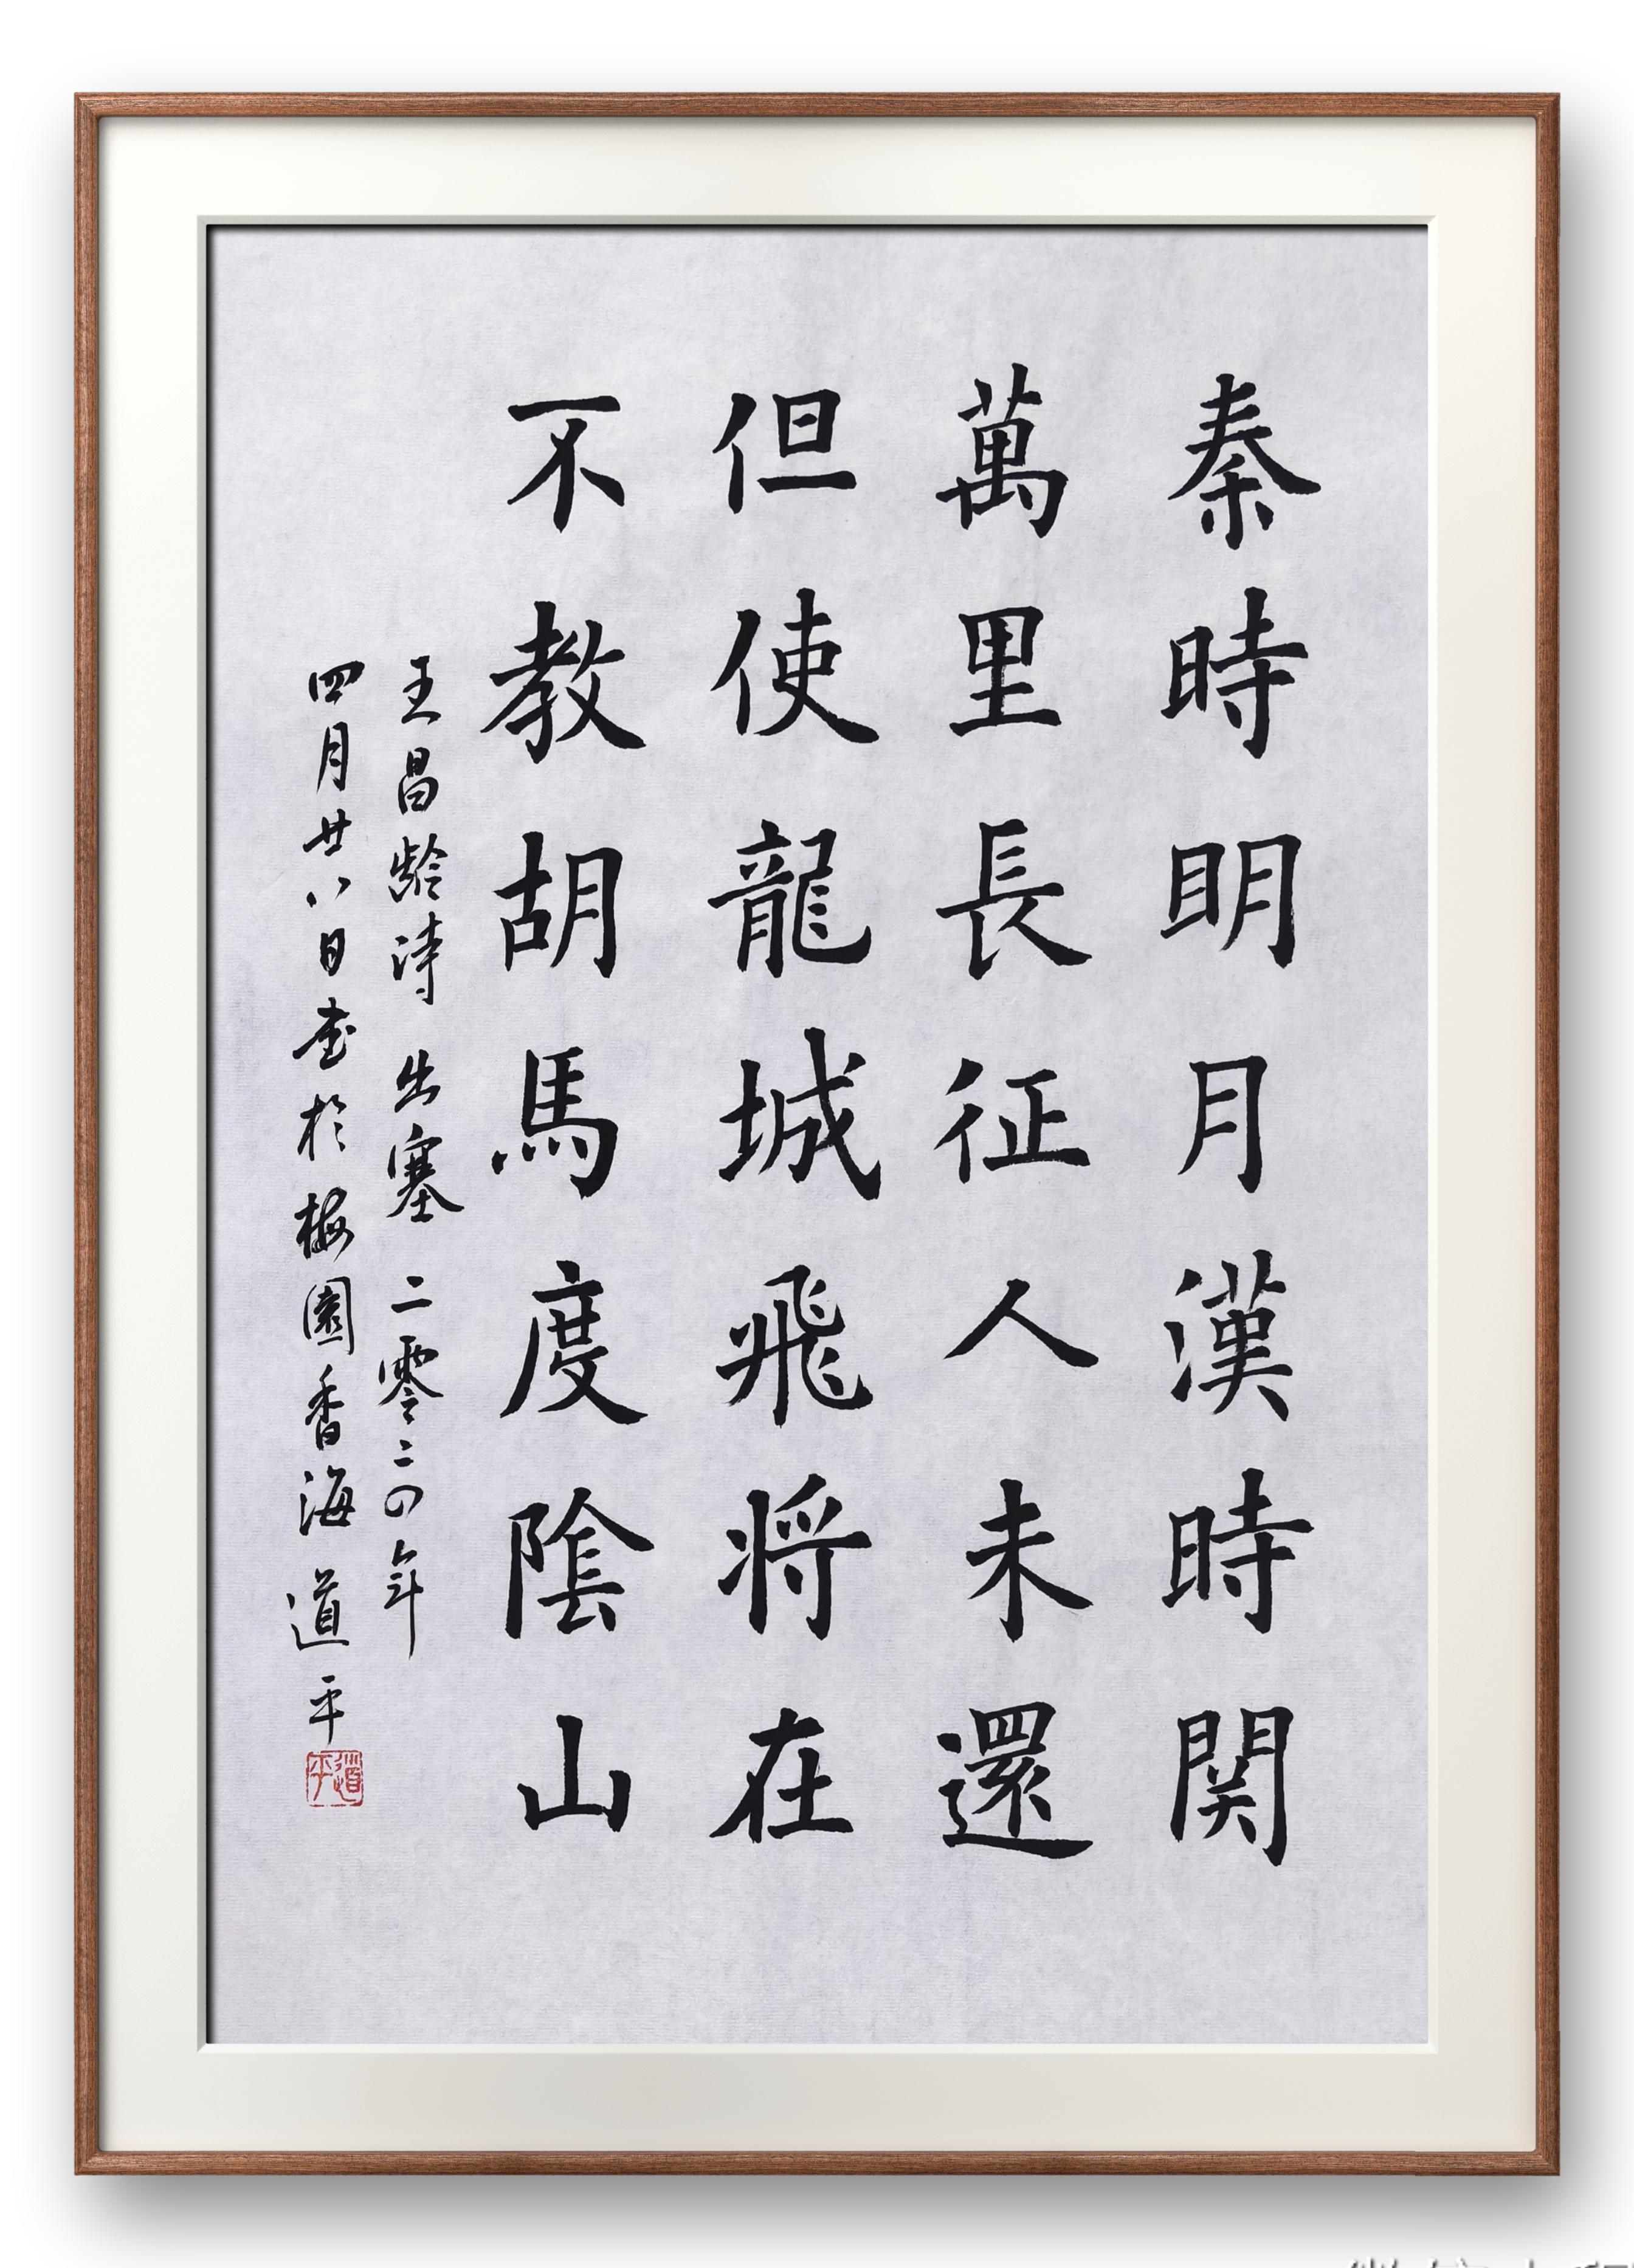 秦時明月漢時関
萬里長征人未還
但使龍城飛将在
不教胡馬度陰山
王昌齡诗 出塞 二零二四年
四月廿八日书於梅園香海 道平
道平